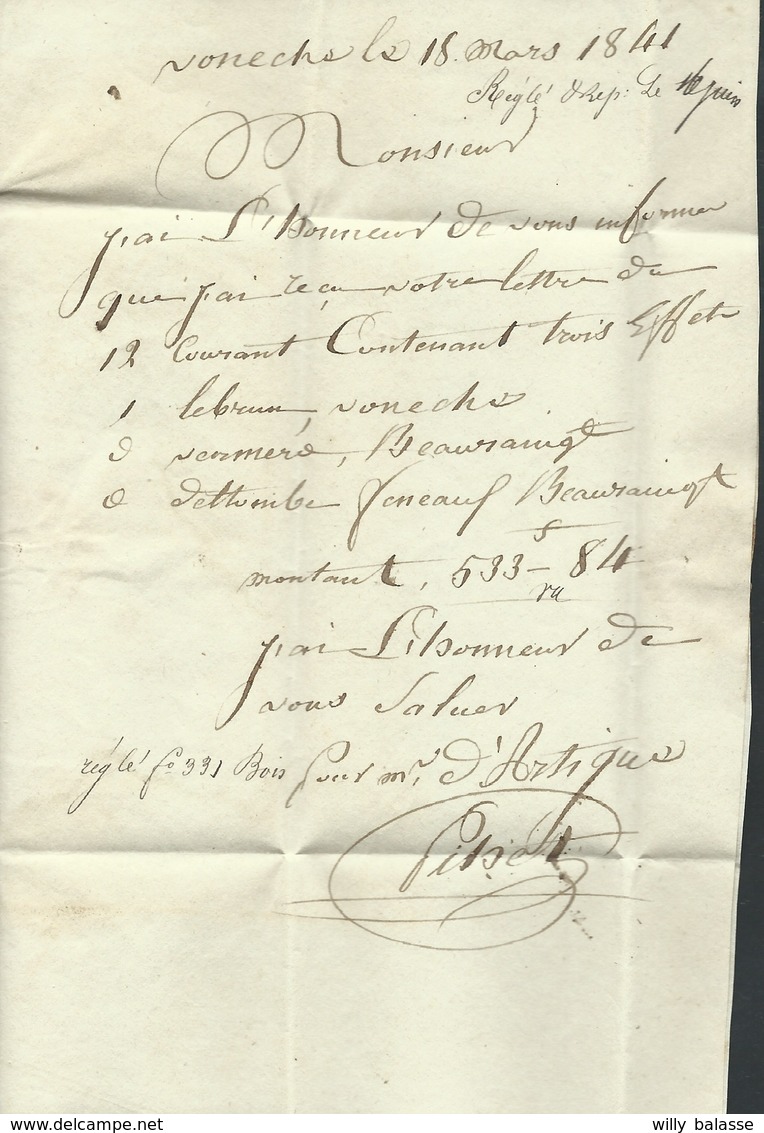 voneche le 18 mars 1841
Réglé & rep: Le 16 juin
Monsieur
j'ai L'honneur de vous informer
que j'ai reçu votre lettre du
12 Courant Contenant trois Effets
1 lebrun, voneche
d vermere, Beauraingt
d dettombe feneauf Beauraingt
f
montant, 533 - 84
j'ai L'honneur de
vous Saluer
réglé fo 331 Bois pour mr. d'Artigue
delcampe.net
willy balasse